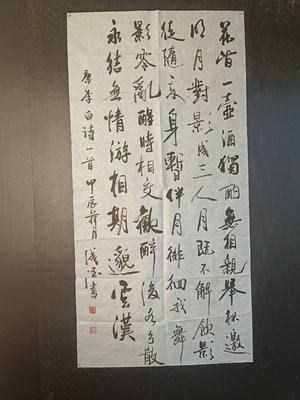 花間一壺酒獨酌無相親舉杯邀
明月對影成三人月既不解飲影
徒隨我身暫伴月徘徊我舞
影零亂醒時相交歡醉後各分散
永結無情游相期邈雲漢
唐李白詩一首 甲辰 月 書